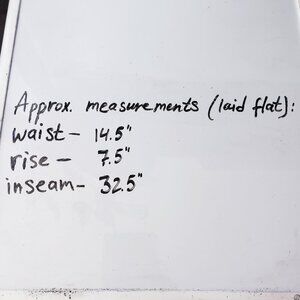 Approx. measurements (laid flat):
waist – 14.5"
rise – 7.5"
inseam – 32.5"